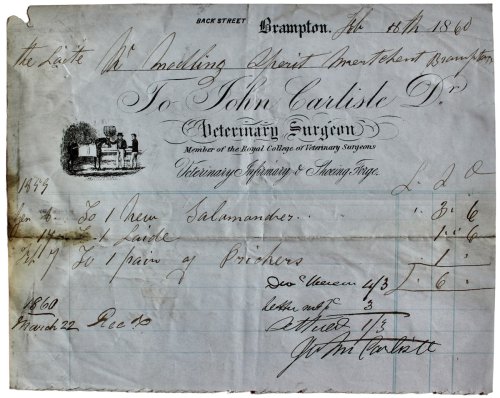 BACK STREET Brampton. Feb 18th 1860
the Laite Mr Medling Spirit Merchent Brampton
To John Carlisle Dr.
Veterinary Surgeon
Member of the Royal College of Veterinary Surgeons
Veterinary Infirmary & Shoeing Forge.
1859 L. S. D
5 To 1 New Salamander " 3 " 6
To 1 " 1 " 6
7 To 1 pair of Prickers " 1 "
4/3 6
3
1860 1/3
March 22 Recd John Carlisle